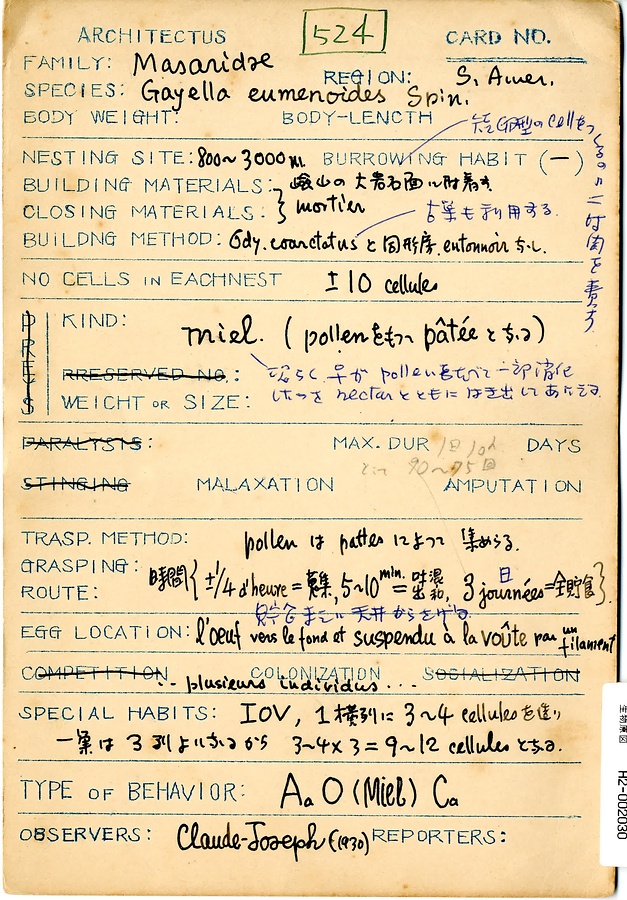 ARCHITECTUS 524 CARD NO.
FAMILY: Masaridae
REGION: S. Amer.
SPECIES: Gayella eumenoides Spin.
BODY WEIGHT: BODY-LENGTH
NESTING SITE: 800~3000m BURROWING HABIT (−)
BUILDING MATERIALS: 山の大岩石面に附着す
CLOSING MATERIALS: mortier
古巣も利用する.
BUILDNG METHOD: Ody. coarctatus と同形房. entonnoir
NO CELLS IN EACHNEST ±10 cellules
PREYS
KIND: miel. (pollenをもつ pâtéeとちがる)
PRESERVED NO.: 恐らく pollen 一部消化
nectarとともにはき出してあたえる
WEIGHT OR SIZE:
PARALYSIS: MAX. DUR 1日10h DAYS
90~75回
STINGING MALAXATION AMPUTATION
TRASP. METHOD: pollen は pattes によって集めらる.
GRASPING:
ROUTE: 時間{±1/4 d'heure = 蒐集, 5~10min. = 吐出 混和, 3 journées日 = 全貯食}
貯食まえに天井からさげる
EGG LOCATION: l'oeuf vers le fond et suspendu à la voûte par un filament
COMPETITION COLONIZATION SOCIALIZATION
... plusieurs individus ...
SPECIAL HABITS: IOV, 1横列に 3~4 cellulesを造り
一巣は 3列よりなるから 3~4×3 = 9~12 cellules となる.
TYPE OF BEHAVIOR: Aa O (Miel) Ca
OBSERVERS: Claude-Joseph (1930) REPORTERS:
生物棟図 H2-002030